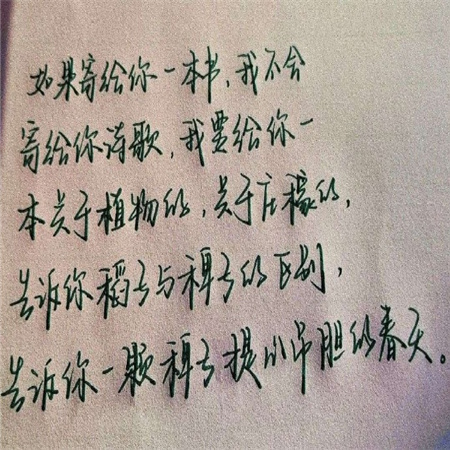 如果寄给你一本书，我不会
寄给你诗歌，我要给你一
本关于植物的，关于庄稼的，
告诉你稻子与稗子的区别，
告诉你一颗稗子提心吊胆的春天。